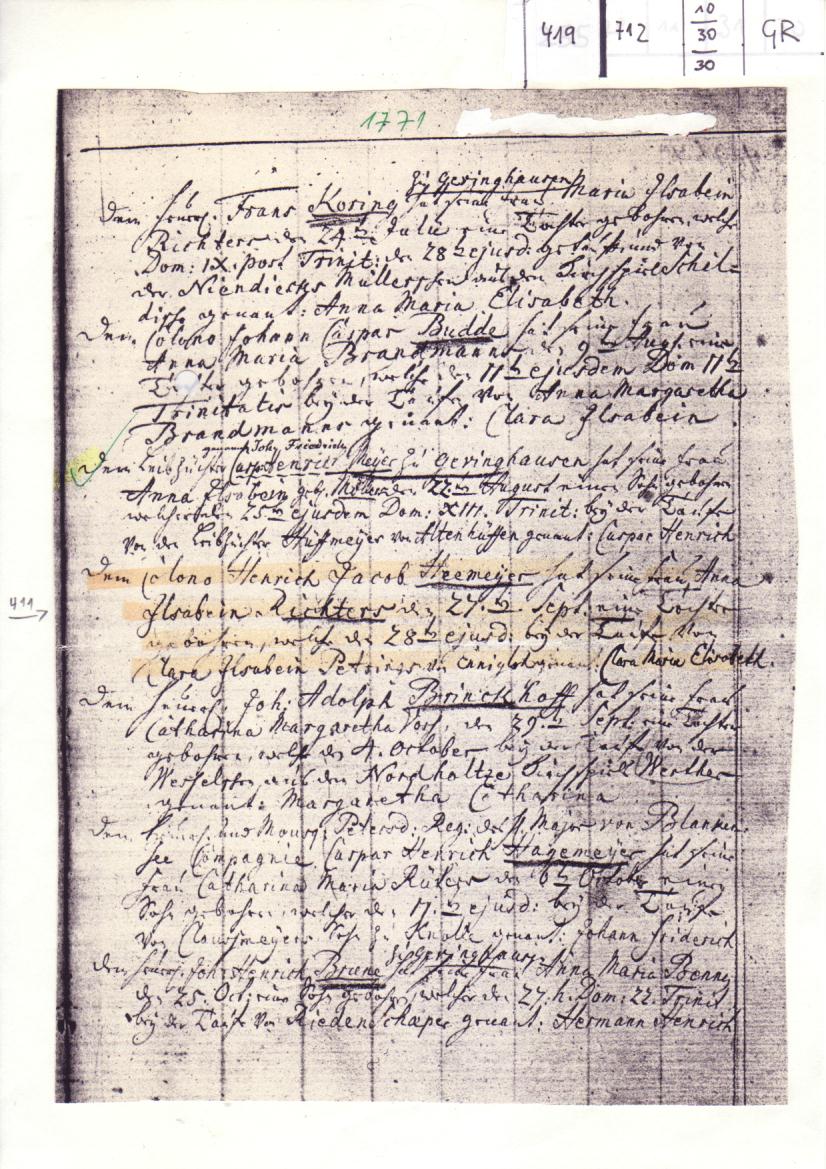 419 712 10 30 30 GR
1771
zu Geringhausen
Dem Heuerl: Frans Koring hat seine Frau Maria Ilsabein
Richters den 24. Julii eine Tochter gebohren, welche
Dom: IX. post Trinit: den 28 ejusd: getauft und von
der Niendiecks Müllerschen aus den Kirchspiel Schil=
dische genant: Anna Maria Elisabeth.
Dem Colono Johann Caspar Budde hat seine Frau
Anna Maria Brandmanns den 9 Aug: eine
Tochter gebohren, welche den 11 ejusdem Dom 11
Trinitatis bey der Taufe von Anna Margaretha
Brandmanns genant: Clara Ilsabein.
genannt Joh: Friedrich
Dem Leibzüchter Casp Henrich Meyer zu Geringhausen hat seine Frau
Anna Ilsabein geb. den 22 August einen Sohn gebohren
welcher den 25 ejusdem Dom: XIII. Trinit: bey der Taufe
von den Leibzüchter Hüfmeyer von Altenhüffen genant: Caspar Henrich
Dem Colono Henrich Jacob Heemeyer hat seine Frau Anna
411
Ilsabein Richters den 27. Sept. eine Tochter
gebohren, welche den 28 ejusd: bey der Taufe von
Clara Ilsabein Petrings von genant: Clara Maria Elisabeth.
Dem Heuerl: Joh: Adolph Brinckhoff hat seine Frau
Catharina Margaretha den 29. Sept: eine Tochter
gebohren, welche den 4. October bey der Taufe von der
Wesselschen aus den Nordholtze Kirchspiel Werther
genant: Margaretha Catharina
Dem Heuerl: und Mousq: Petersd: Reg: des H. Major von Blancken=
see Compagnie Caspar Henrich Hagemeyer hat seine
Frau Catharina Maria Rüters den 6 Octobr einen
Sohn gebohren, welcher den 11. ejusd: bey der Taufe
von Sohn zu Knolle genant: Johann Friderich
zu Geringhausen
Dem Heuerl: Joh: Henrich Brune hat seine Frau Anna Maria Poenny
den 25. Oct: eine Sohn gebohren, welcher den 27. h. Dom: 22. Trinit
bey der Taufe von Riedenschaper genant: Hermann Henrich